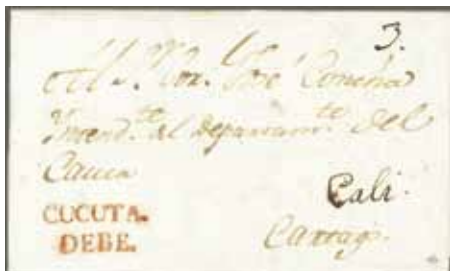 3.
Al Sor. Cor. José Concha
Intend.te del Departam.te del
Cauca
Cali.
CUCUTA.
DEBE.
Cartago.